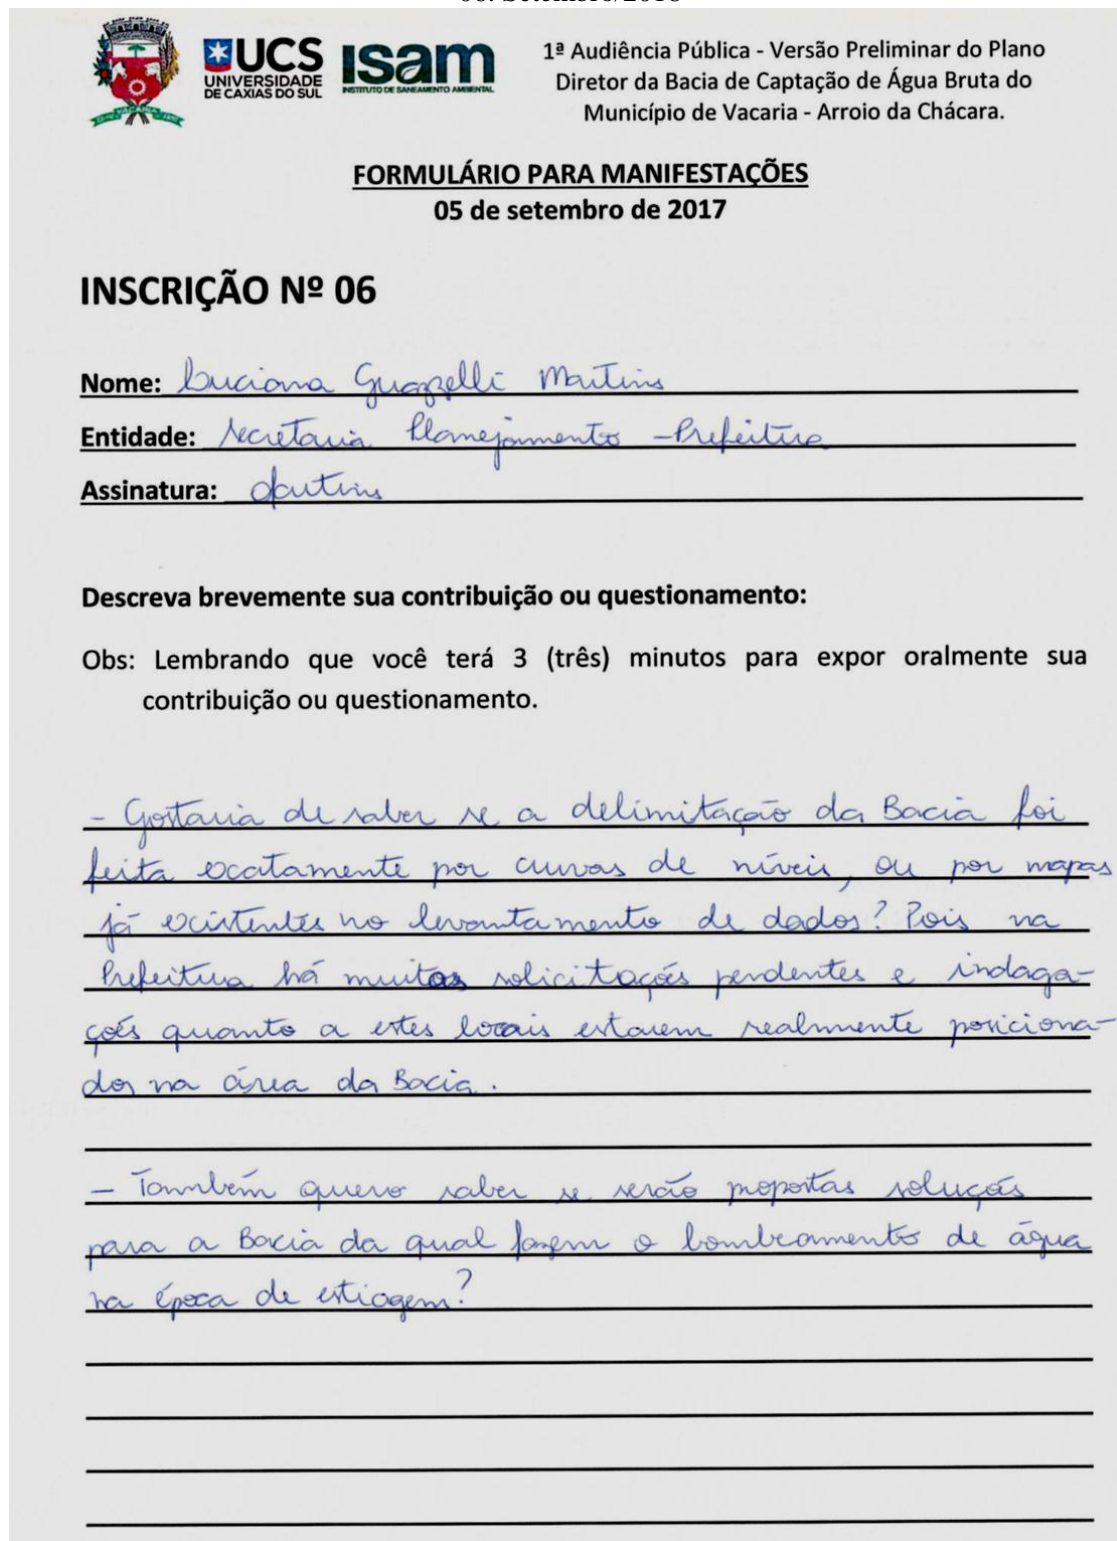 UCS
UNIVERSIDADE
DE CAXIAS DO SUL
ISam
INSTITUTO DE SANEAMENTO AMBIENTAL
1ª Audiência Pública - Versão Preliminar do Plano
Diretor da Bacia de Captação de Água Bruta do
Município de Vacaria - Arroio da Chácara.
FORMULÁRIO PARA MANIFESTAÇÕES
05 de setembro de 2017
INSCRIÇÃO Nº 06
Nome: Luciana Guazzelli Martins
Entidade: Secretaria Planejamento - Prefeitura
Assinatura:
Descreva brevemente sua contribuição ou questionamento:
Obs: Lembrando que você terá 3 (três) minutos para expor oralmente sua
contribuição ou questionamento.
- Gostaria de saber se a delimitação da Bacia foi
feita exatamente por curvas de níveis, ou por mapas
já existentes no levantamento de dados? Pois na
Prefeitura há muitas solicitações pendentes e indaga-
ções quanto a estes locais estarem realmente posiciona-
dos na área da Bacia.
- Também quero saber se serão propostas soluções
para a Bacia da qual fazem o bombeamento de água
na época de estiagem?